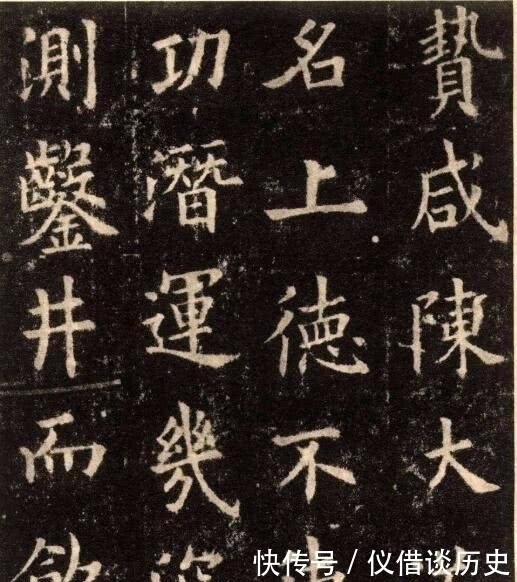 贄咸陳大
名上徳不
功潛運幾
測鑿井而
快传号 / 仪借谈历史